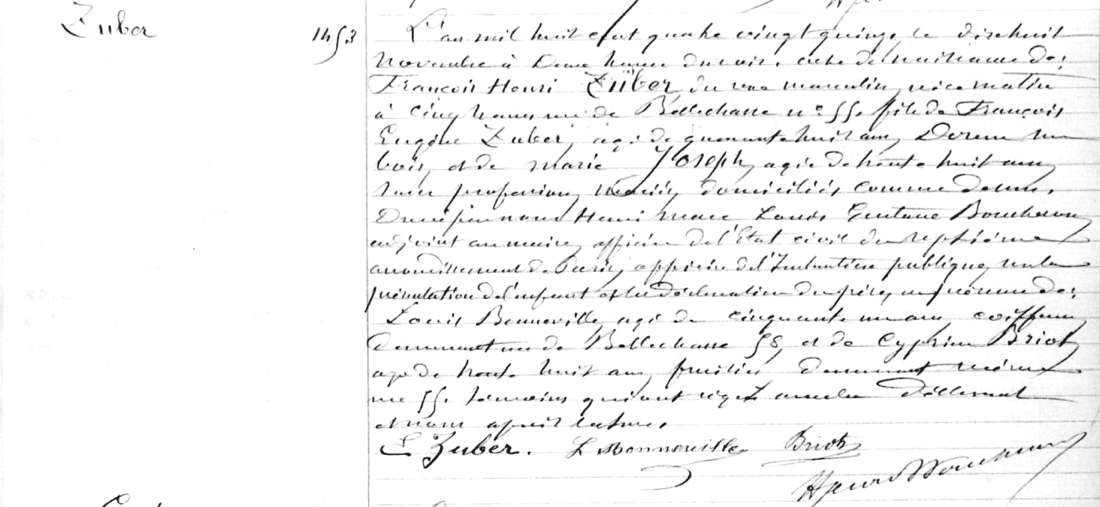 Zuber
1453
L'an mil huit cent quatre vingt quinze le dixhuit
Novembre à Deux heures du soir. Acte de naissance de:
François Henri Züber, du sexe masculin, né ce matin
à cinq heures rue de Bellechasse n° 55. fils de François
Eugène Zuber, agé de quarante huit ans, Doreur sur
bois, et de Marie Joseph, agée de trente huit ans
sans profession, mariés, domiciliés comme dessus.
Dressé par nous Henri Marc Louis Gustave Bourcheron
adjoint au maire, officier de l'Etat civil du septième
arrondissement de Paris, officier de l'Instruction publique, sur la
présentation de l'enfant et la déclaration du père, en présence de:
Louis Bonneville, agé de cinquante un ans coiffeur
demeurant rue de Bellechasse 58, et de Cyprien Briot
agé de trente huit ans, fruitier demeurant même
rue 55. témoins qui ont signé avec le Déclarant
et nous après lecture.
E Zuber. L Bonneville Briot